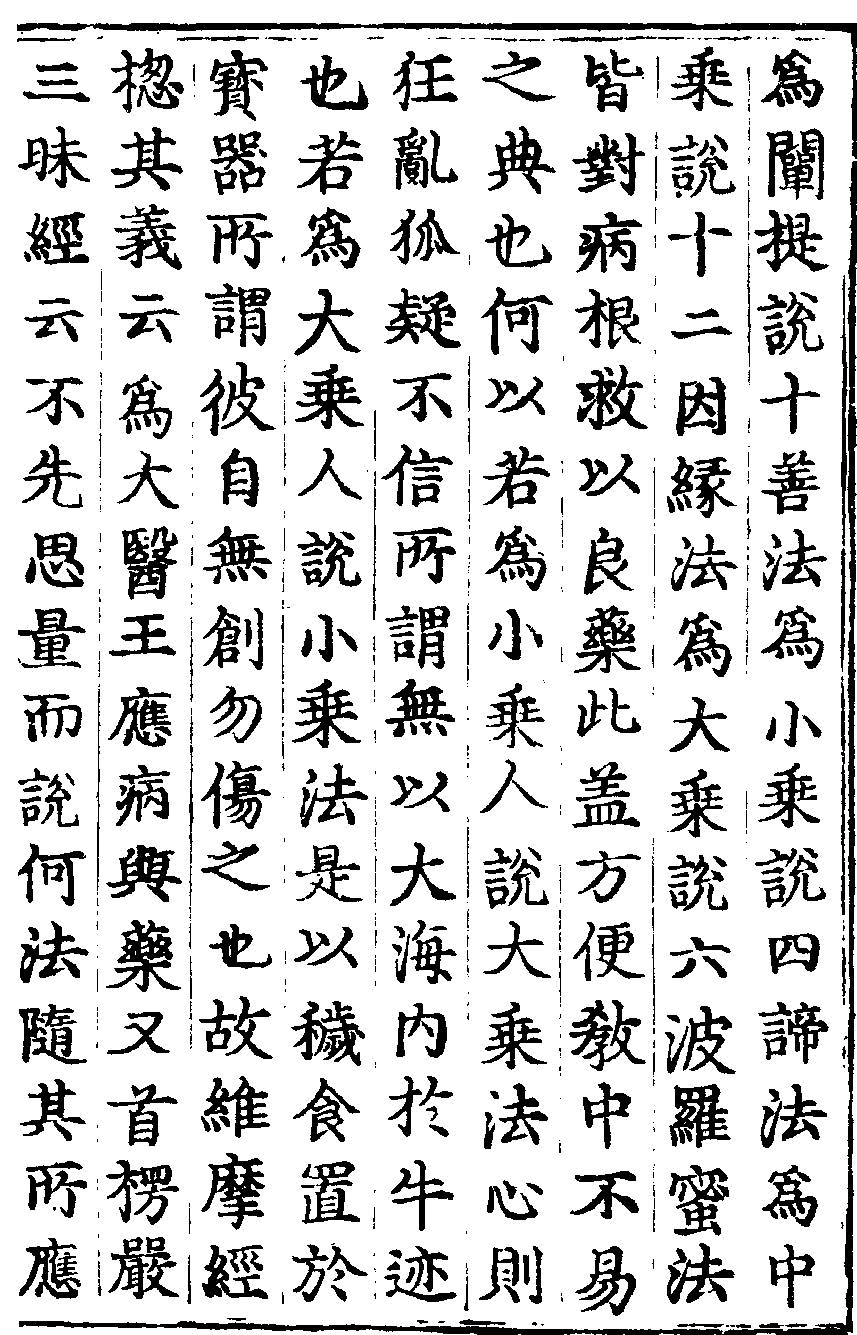 爲闡提說十善法爲小乗說四諦法爲中
乗說十二因縁法爲大乗說六波羅蜜法
皆對病根救以良藥此盖方便教中不易
之典也何以若爲小乗人說大乗法心則
狂亂狐疑不信所謂無以大海内於牛迹
也若爲大乗人說小乗法是以穢食置於
寳器所謂彼自無創勿傷之也故維摩經
揔其義云爲大醫王應病與藥又首楞嚴
三昧經云不先思量而說何法隨其所應